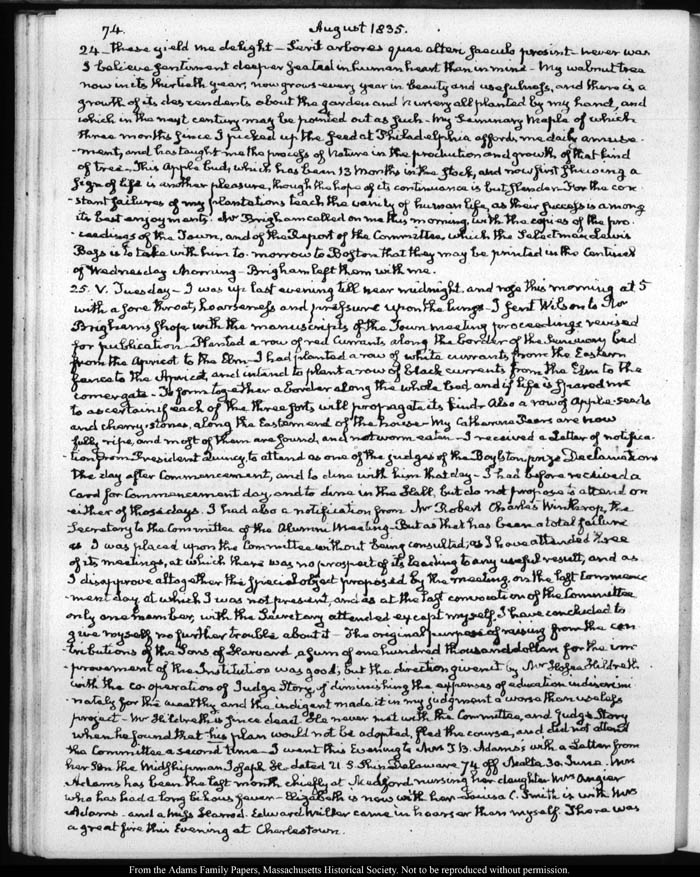 74. August 1835.
24 these yield me delight – Serit arbores quae alteri saeculo prosint – never was
I believe sentiment deeper seated in human heart than in mine – My walnut tree
now in its thirtieth year, now grows every year in beauty and usefulness, and there is a
growth of its descendents about the garden and nursery all planted by my hand, and
which in the next century may be pointed out as such – My Seminary Maple of which
three months since I picked up the seed at Philadelphia affords me daily amuse-
-ment, and has taught me the process of Nature in the production and growth of that kind
of tree – This Apple bud, which has been 13 Months in the stock, and now first shewing a
sign of life is another pleasure, though the hope of its continuance is but slender – For the con-
-stant failures of my plantations teach the vanity of human life, as their success is among
its best enjoyments. Mr Brigham called on me this morning, with the copies of the pro-
-ceedings of the Town, and of the Report of the Committee, which the Selectman Lewis
Bass is to take with him to-morrow to Boston that they may be printed in the Centinel
of Wednesday Morning – Brigham left them with me.
25. V. Tuesday – I was up last evening till near midnight, and rose this morning at 5
with a sore throat, hoarseness and pressure upon the lungs – I sent Wilson to Mr
Brigham's shop with the manuscripts of the Town meeting proceedings revised
for publication – Planted a row of red Currants along the border of the Seminary bed
from the Apricot to the Elm – I had planted a row of white currants from the Eastern
fence to the Apricot, and intend to plant a row of black currents from the Elm to the
corner gate – To form together a border along the whole bed, and if life is spared me
to ascertain if each of the three sorts will propagate its kind. Also a row of Apple-seeds
and cherry-stones, along the Eastern end of the house – My Catharine Pears are now
fully ripe, and most of them are sound, and not worm eaten – I received a Letter of notifica-
-tion from President Quincy, to attend as one of the judges of the Boylston prize Declamations
the day after Commencement, and to dine with him that day – I had before received a
Card for Commencement day, and to dine in the Hall, but do not propose to attend on
either of those days. I had also a notification from Mr Robert Charles Winthrop, the
Secretary to the Committee of the Alumni Meeting – But as that has been a total failure
as I was placed upon the Committee without being consulted, as I have attended three
of its meetings, at which there was no prospect of its leading to any useful result, and as
I disapprove altogether the special object proposed by the meeting, on the last Commence
-ment day at which I was not present, and as at the last convocation of the Committee
only one member, with the Secretary attended except myself, I have concluded to
give myself no further trouble about it – The original purpose of raising from the con-
-tributions of the Sons of Harvard, a sum of one hundred thousand dollars for the im-
-provement of the Institution was good; but the direction given it by Mr Hosea Hildreth
with the co-operation of Judge Story, of diminishing the expenses of education indiscrimi-
nately for the wealthy and the indigent made it in my judgment a worse than useless
project – Mr Hildreth is since dead. He never met with the Committee, and Judge Story
when he found that his plan would not be adopted, fled the course, and did not attend
the Committee a second time – I went this Evening to Mrs T. B. Adams's with a Letter from
her Son the Midshipman Joseph H. dated 21 Ship Delaware 74 off Malta 30. June. Mrs
Adams has been the last month chiefly at Medford nursing her daughter Mrs Angier
who has had a long bilious fever – Elizabeth is now with her – Louisa C. Smith is with Mrs
Adams – and a Miss Harrod. Edward Miller came in hoarser than myself. There was
a great fire this Evening at Charlestown.
From the Adams Family Papers, Massachusetts Historical Society. Not to be reproduced without permission.